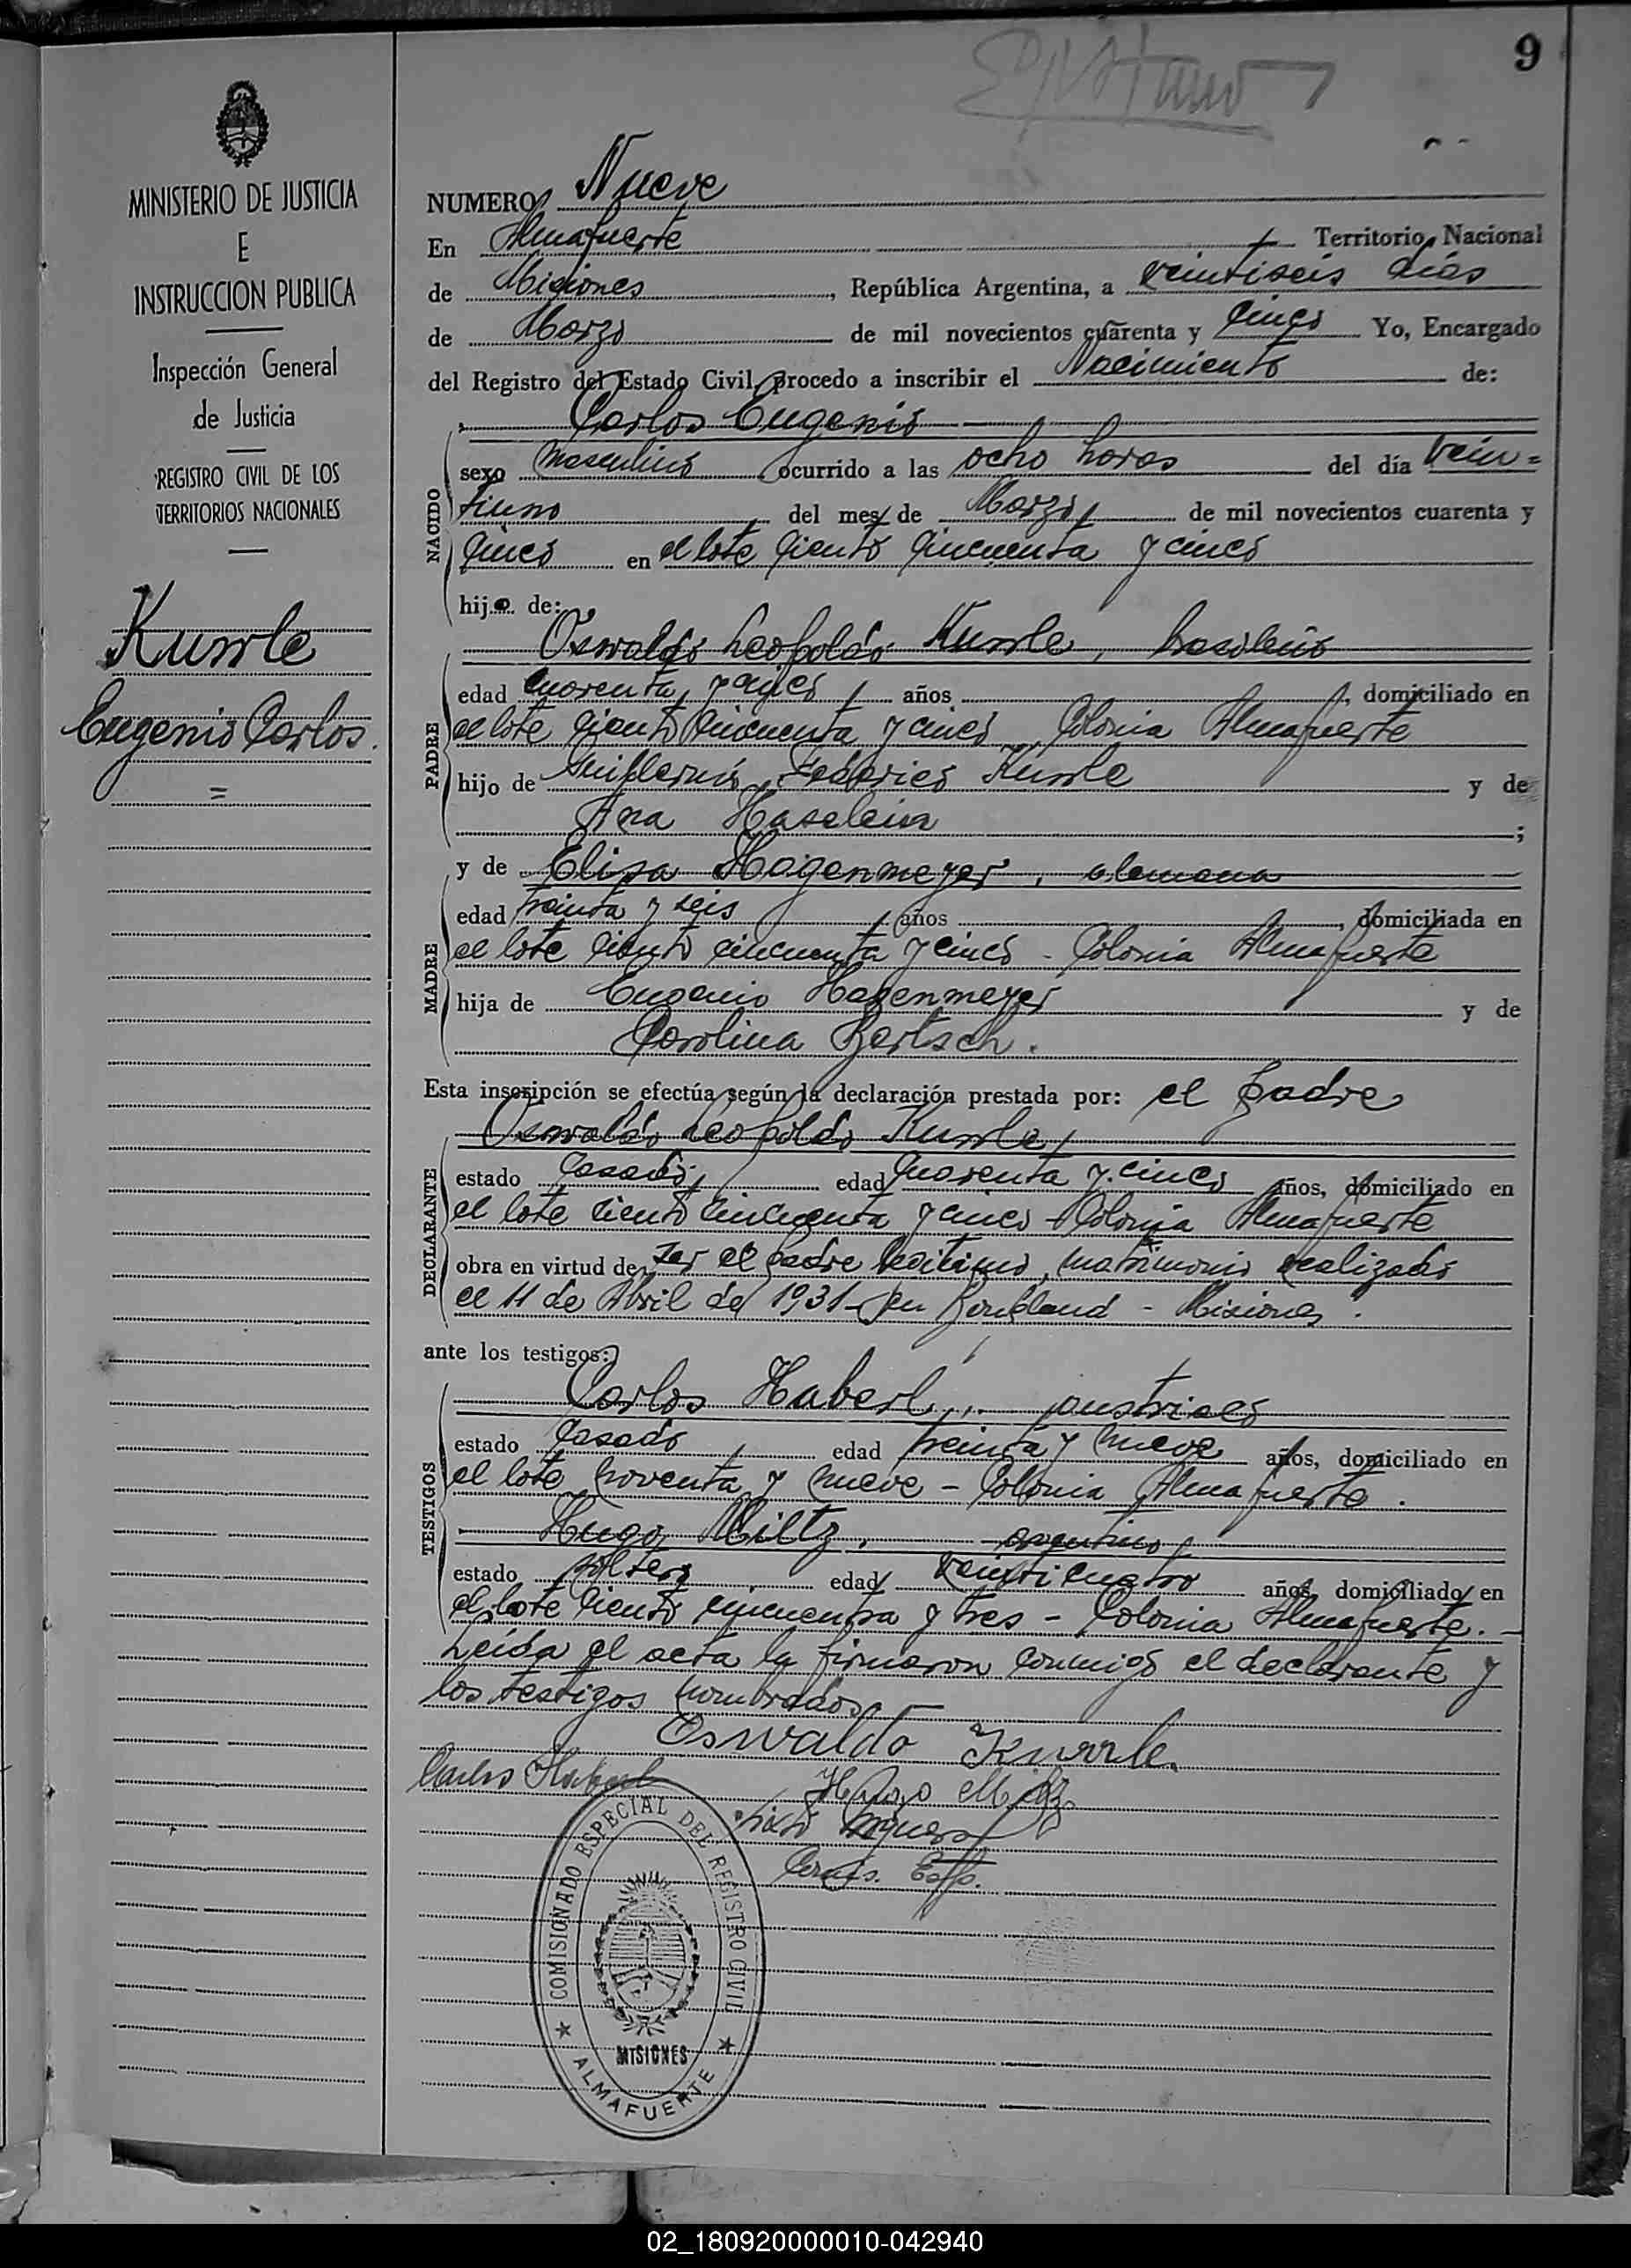 9
MINISTERIO DE JUSTICIA
E
INSTRUCCION PUBLICA
Inspección General
de Justicia
REGISTRO CIVIL DE LOS
TERRITORIOS NACIONALES
Kurrle
Eugenio Carlos.
=
NUMERO Nueve
En Almafuerte Territorio Nacional
de Misiones, República Argentina, a veintiseis dias
de Marzo de mil novecientos cuarenta y cinco Yo, Encargado
del Registro del Estado Civil, procedo a inscribir el Nacimiento de:
Carlos Eugenio
NACIDO
sexo masculino ocurrido a las ocho horas del día vein=
tiuno del mes de Marzo de mil novecientos cuarenta y
cinco en el lote ciento cincuenta y cinco
hijo de:
PADRE
Oswaldo Leopoldo Kurrle, brasileño
edad cuarenta y cinco años, domiciliado en
el lote ciento cincuenta y cinco Colonia Almafuerte
hijo de Guillermo Federico Kurrle y de
Ana Haselein;
MADRE
y de Elisa Hagenmeyer, alemana
edad treinta y seis años, domiciliada en
el lote ciento cincuenta y cinco - Colonia Almafuerte
hija de Eugenio Hagenmeyer y de
Carolina Bertsch.
Esta inscripción se efectúa según la declaración prestada por: el padre
DECLARANTE
Oswaldo Leopoldo Kurrle,
estado casado, edad cuarenta y cinco años, domiciliado en
el lote ciento cincuenta y cinco - Colonia Almafuerte
obra en virtud de ser el padre legitimo, matrimonio realizado
el 11 de Abril de 1931 - en Bonpland - Misiones.
ante los testigos:
TESTIGOS
Carlos Haberl, austriaco
estado casado, edad treinta y nueve años, domiciliado en
el lote noventa y nueve - Colonia Almafuerte.
Hugo Miltz, argentino
estado soltero edad veinticuatro años, domiciliado en
el lote ciento cincuenta y tres - Colonia Almafuerte. -
Leída el acta la firmaron conmigo el declarante y
los testigos nombrados. -
Osvaldo Kurrle.
Carlos Haberl
Hugo Miltz
Comis. Esp.
COMISIONADO ESPECIAL DEL REGISTRO CIVIL
MISIONES
★ ALMAFUERTE ★
02_180920000010-042940